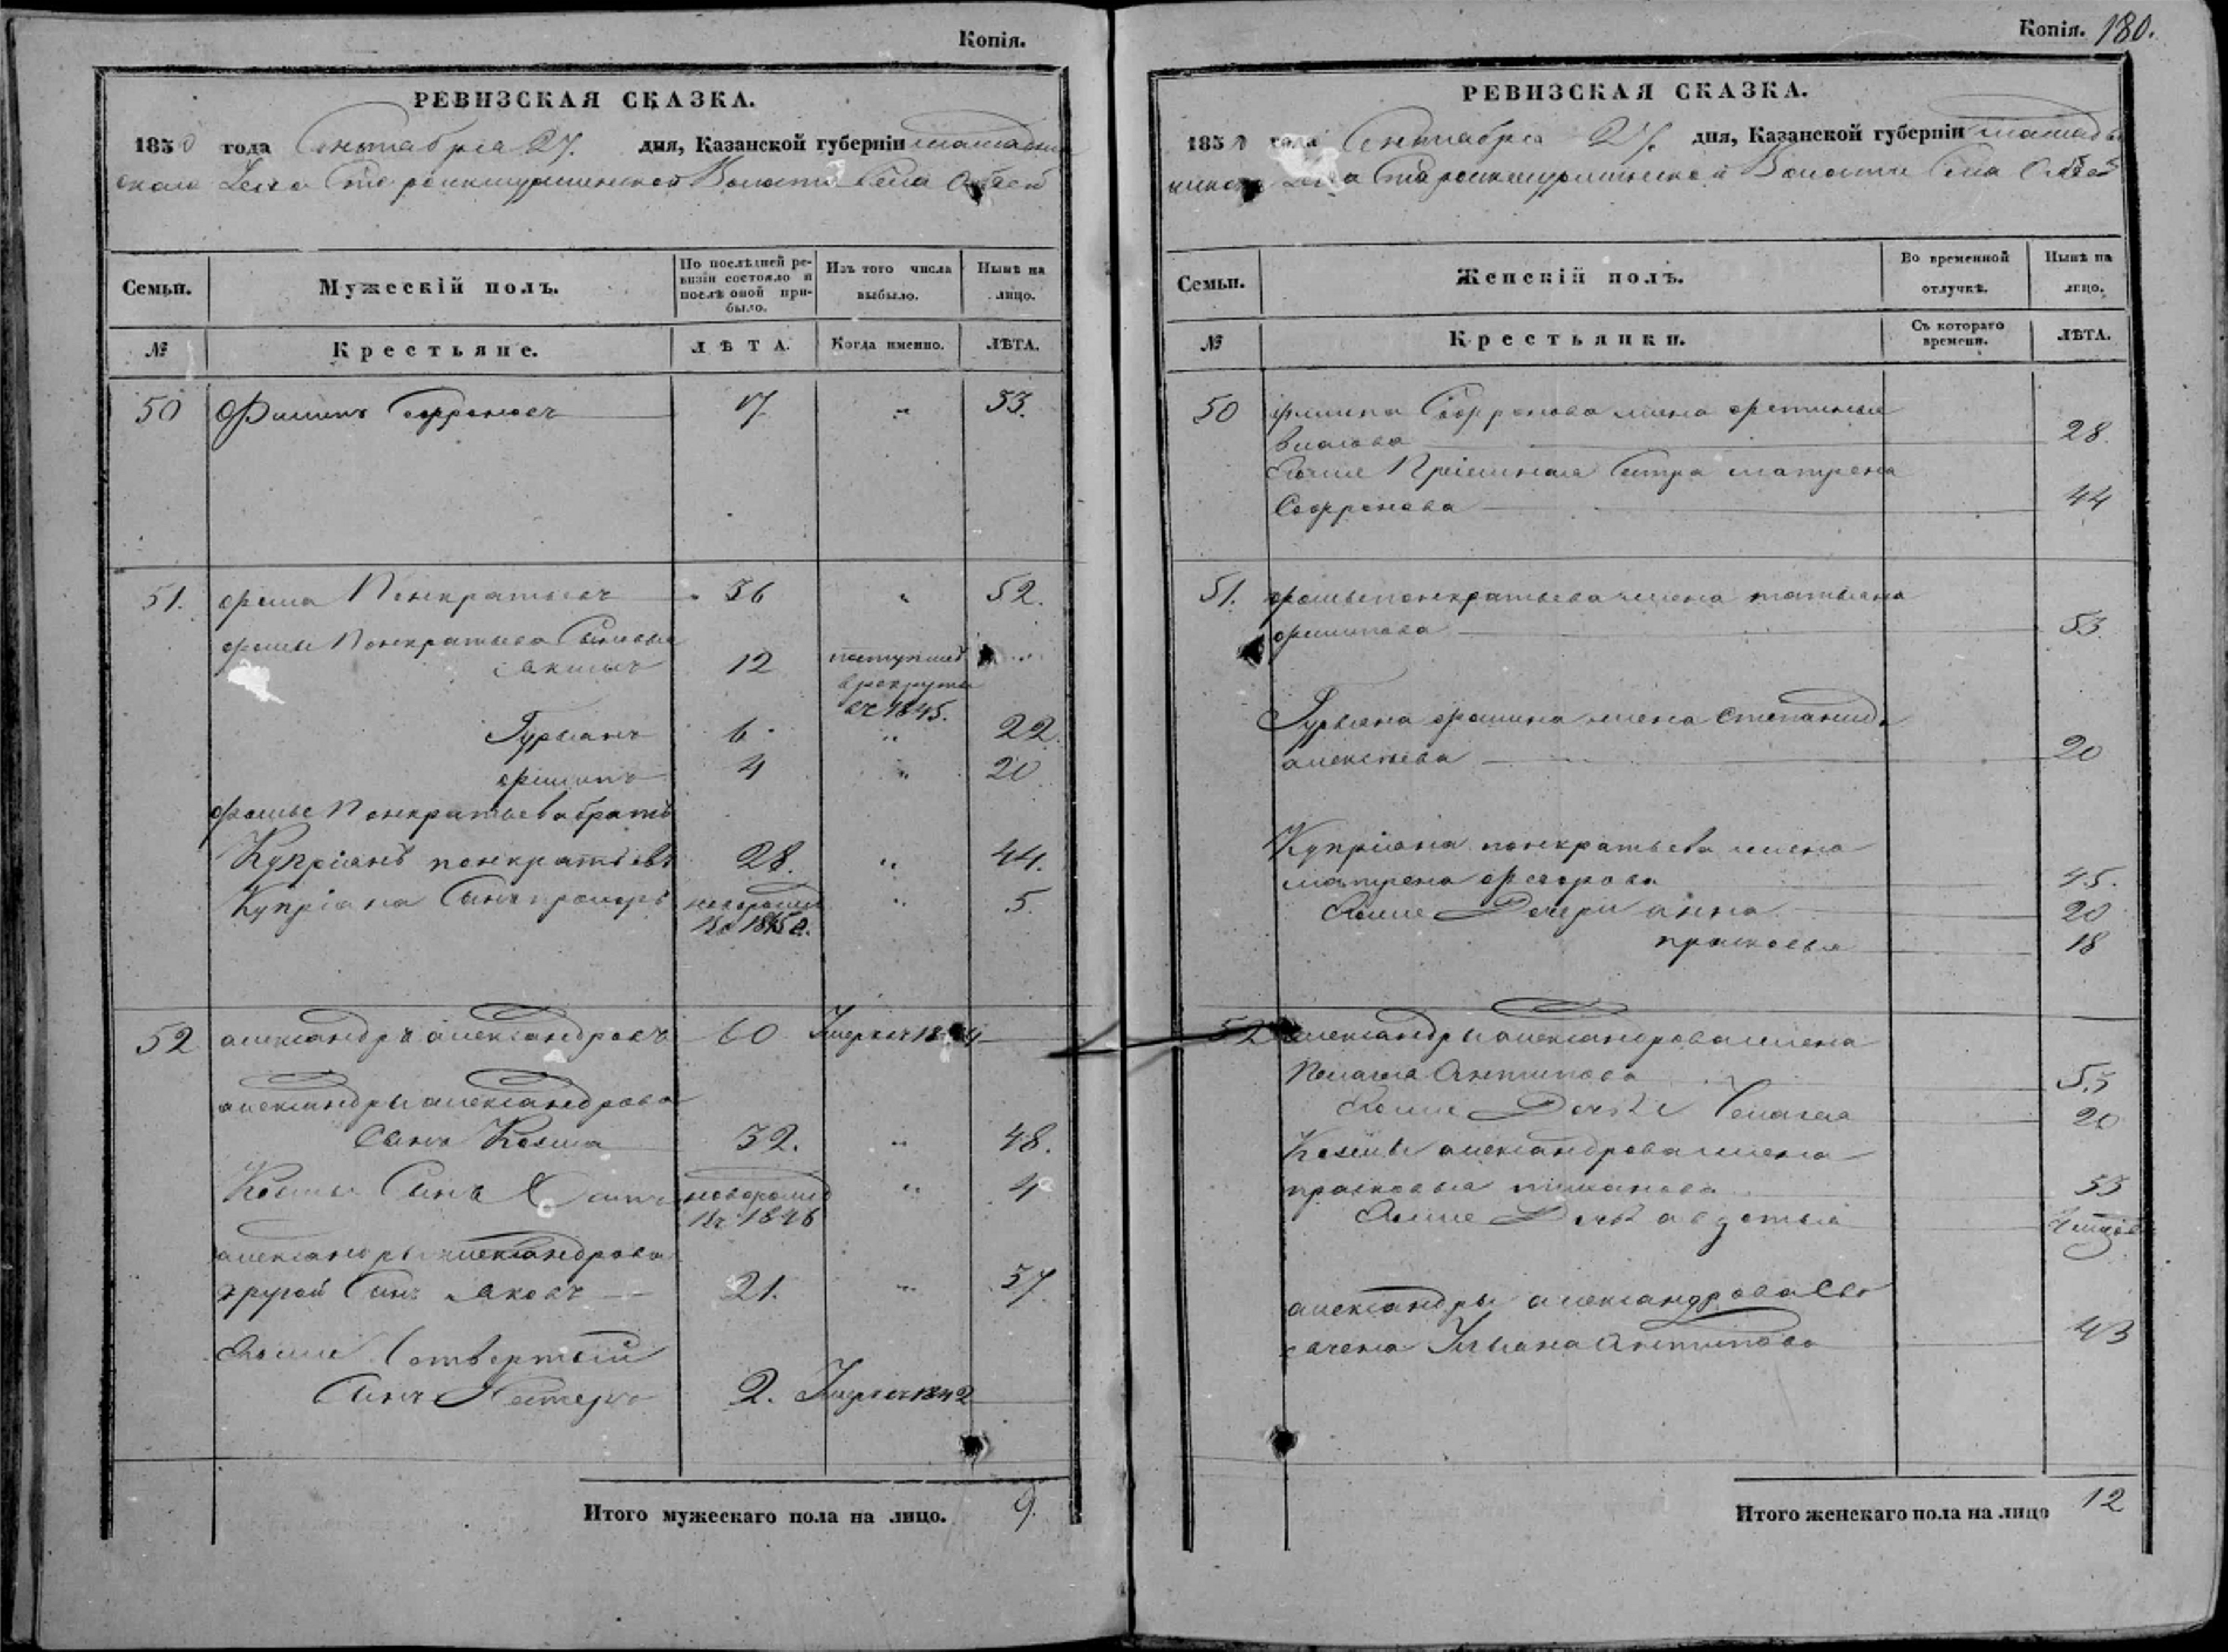 Копія.
РЕВИЗСКАЯ СКАЗКА.
1850 года Сентября 27. дня, Казанской губерніи
Волости Села
Семьи.
Мужескій полъ.
По послѣдней ре-
визіи состояло и
послѣ оной при-
было.
Изъ того числа
выбыло.
Нынѣ на
лицо.
№
Крестьяне.
ЛѢТА.
Когда именно.
ЛѢТА.
50 Филипъ Софроновъ 17 " 53.
51. фома Понкратьевъ 36 " 52.
фомы Понкратьева Сыновья
12 поступилъ
в рекруты
въ 1845.
Гурьянъ 6 " 22.
филипъ 4 " 20
фомы Понкратьева братъ
Купріянъ понкратьевъ 28. " 44.
Купріяна Сынъ новорожд " 5.
въ 1845 г.
52 александръ александровъ 60 Умеръ въ
александры александрова
Сынъ Козма 32. " 48.
Козмы Сынъ новорожд " 4
въ 1846
александры александрова
другой Сынъ яковъ 21. " 37.
Его же Четвертый
Сынъ Нестеръ 2. Умеръ въ 1842
Итого мужескаго пола на лицо. 9.
Копія. 180.
РЕВИЗСКАЯ СКАЗКА.
1850 года Сентября 27. дня, Казанской губерніи
Волости Села
Семьи.
Женскій полъ.
Во временной
отлучкѣ.
Нынѣ на
лицо.
№
Крестьянки.
Съ котораго
времени.
ЛѢТА.
50 филипа Софронова жена фетинья
власова 28.
Его же Сестра матрена
Софронова 44
51. фомы понкратьева жена татьяна
филипова 53.
Гурьяна фомина жена степанида
алексеева 20
Купріяна понкратьева жена
матрена федорова 45.
Его же Дочери анна 20
прасковья 18
52 александры александрова жена
Пелагея Антипова 55
Его же Дочь Пелагея 20
Козмы александрова жена
прасковья 33
Его же Дочь авдотья
александры александрова
Ульяна Антипова 43
Итого женскаго пола на лицо 12